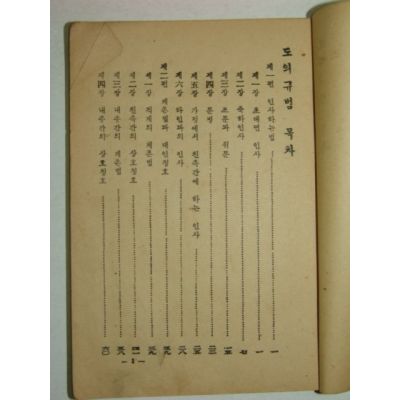 도의규범 목차
제一편 인사하는법 一
제一장 초대면 인사 一
제二장 축하인사 七
제三장 조문과 위문 一五
제四장 문병 二三
제五장 가정에서 친족간에 하는 인사 二五
제六장 타인과의 인사 二八
제二편 계촌법과 대인칭호 二九
제一장 계촌법 二九
제二장 친족간의 상호칭호
제三장 내종간의 계촌법
제四장 내종간의 상호칭호 六〇
— 1 —